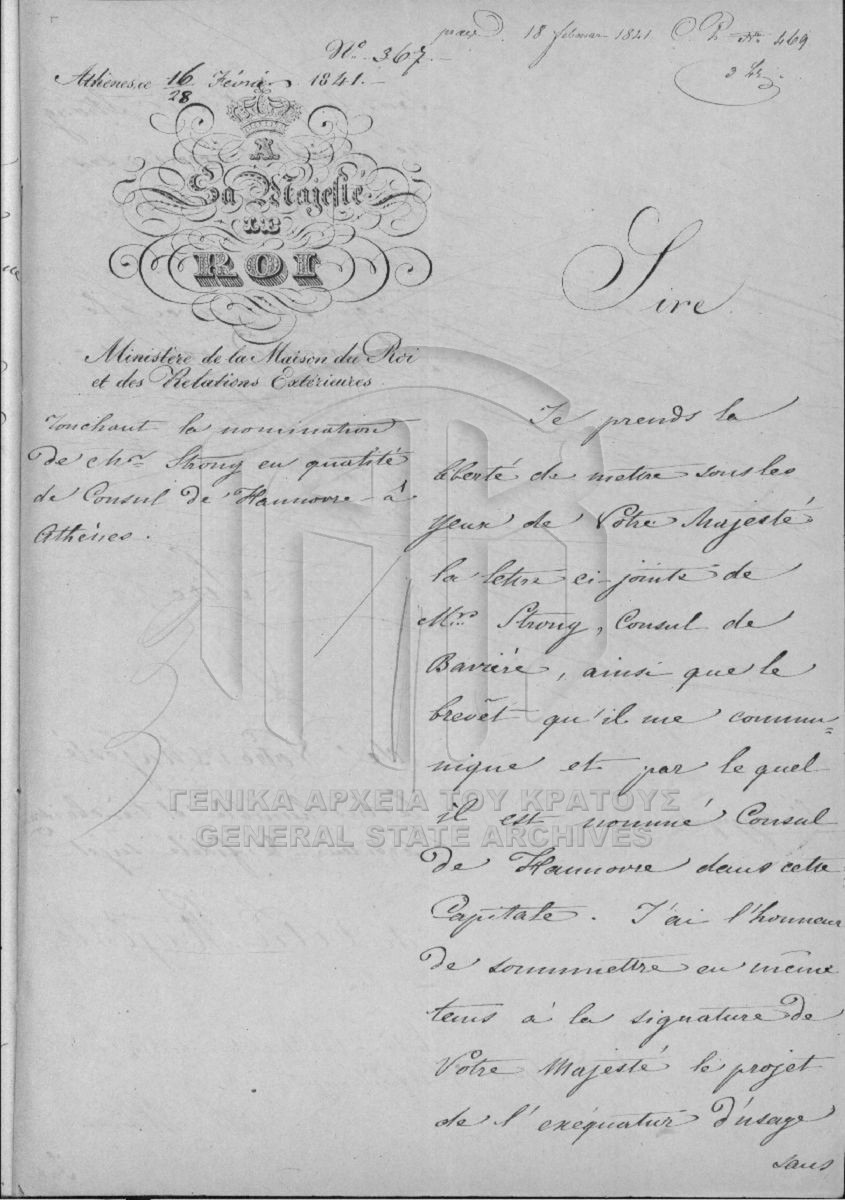 18 februar 1841. № 469
№ 367.
Athènes, ce 16/28 Févrie 1841.
A
Sa Majesté
LE
ROI
Ministère de la Maison du Roi
et des Relations Extérieures.
Touchant la nomination
de Mr. Strong en qualité
de Consul de Hannovre à
Athènes.
Sire.
Je prends la
liberté de mettre sous les
yeux de Votre Majesté
la lettre ci-jointe de
Mr. Strong, Consul de
Bavière, ainsi que le
brevêt qu'il me commu=
nique et par lequel
il est nommé Consul
de Hannovre dans cette
Capitale. J'ai l'honneur
de sommettre en même
tems à la signature de
Votre Majesté le projet
de l'exéquatur d'usage
sans
ΓΕΝΙΚΑ ΑΡΧΕΙΑ ΤΟΥ ΚΡΑΤΟΥΣ
GENERAL STATE ARCHIVES